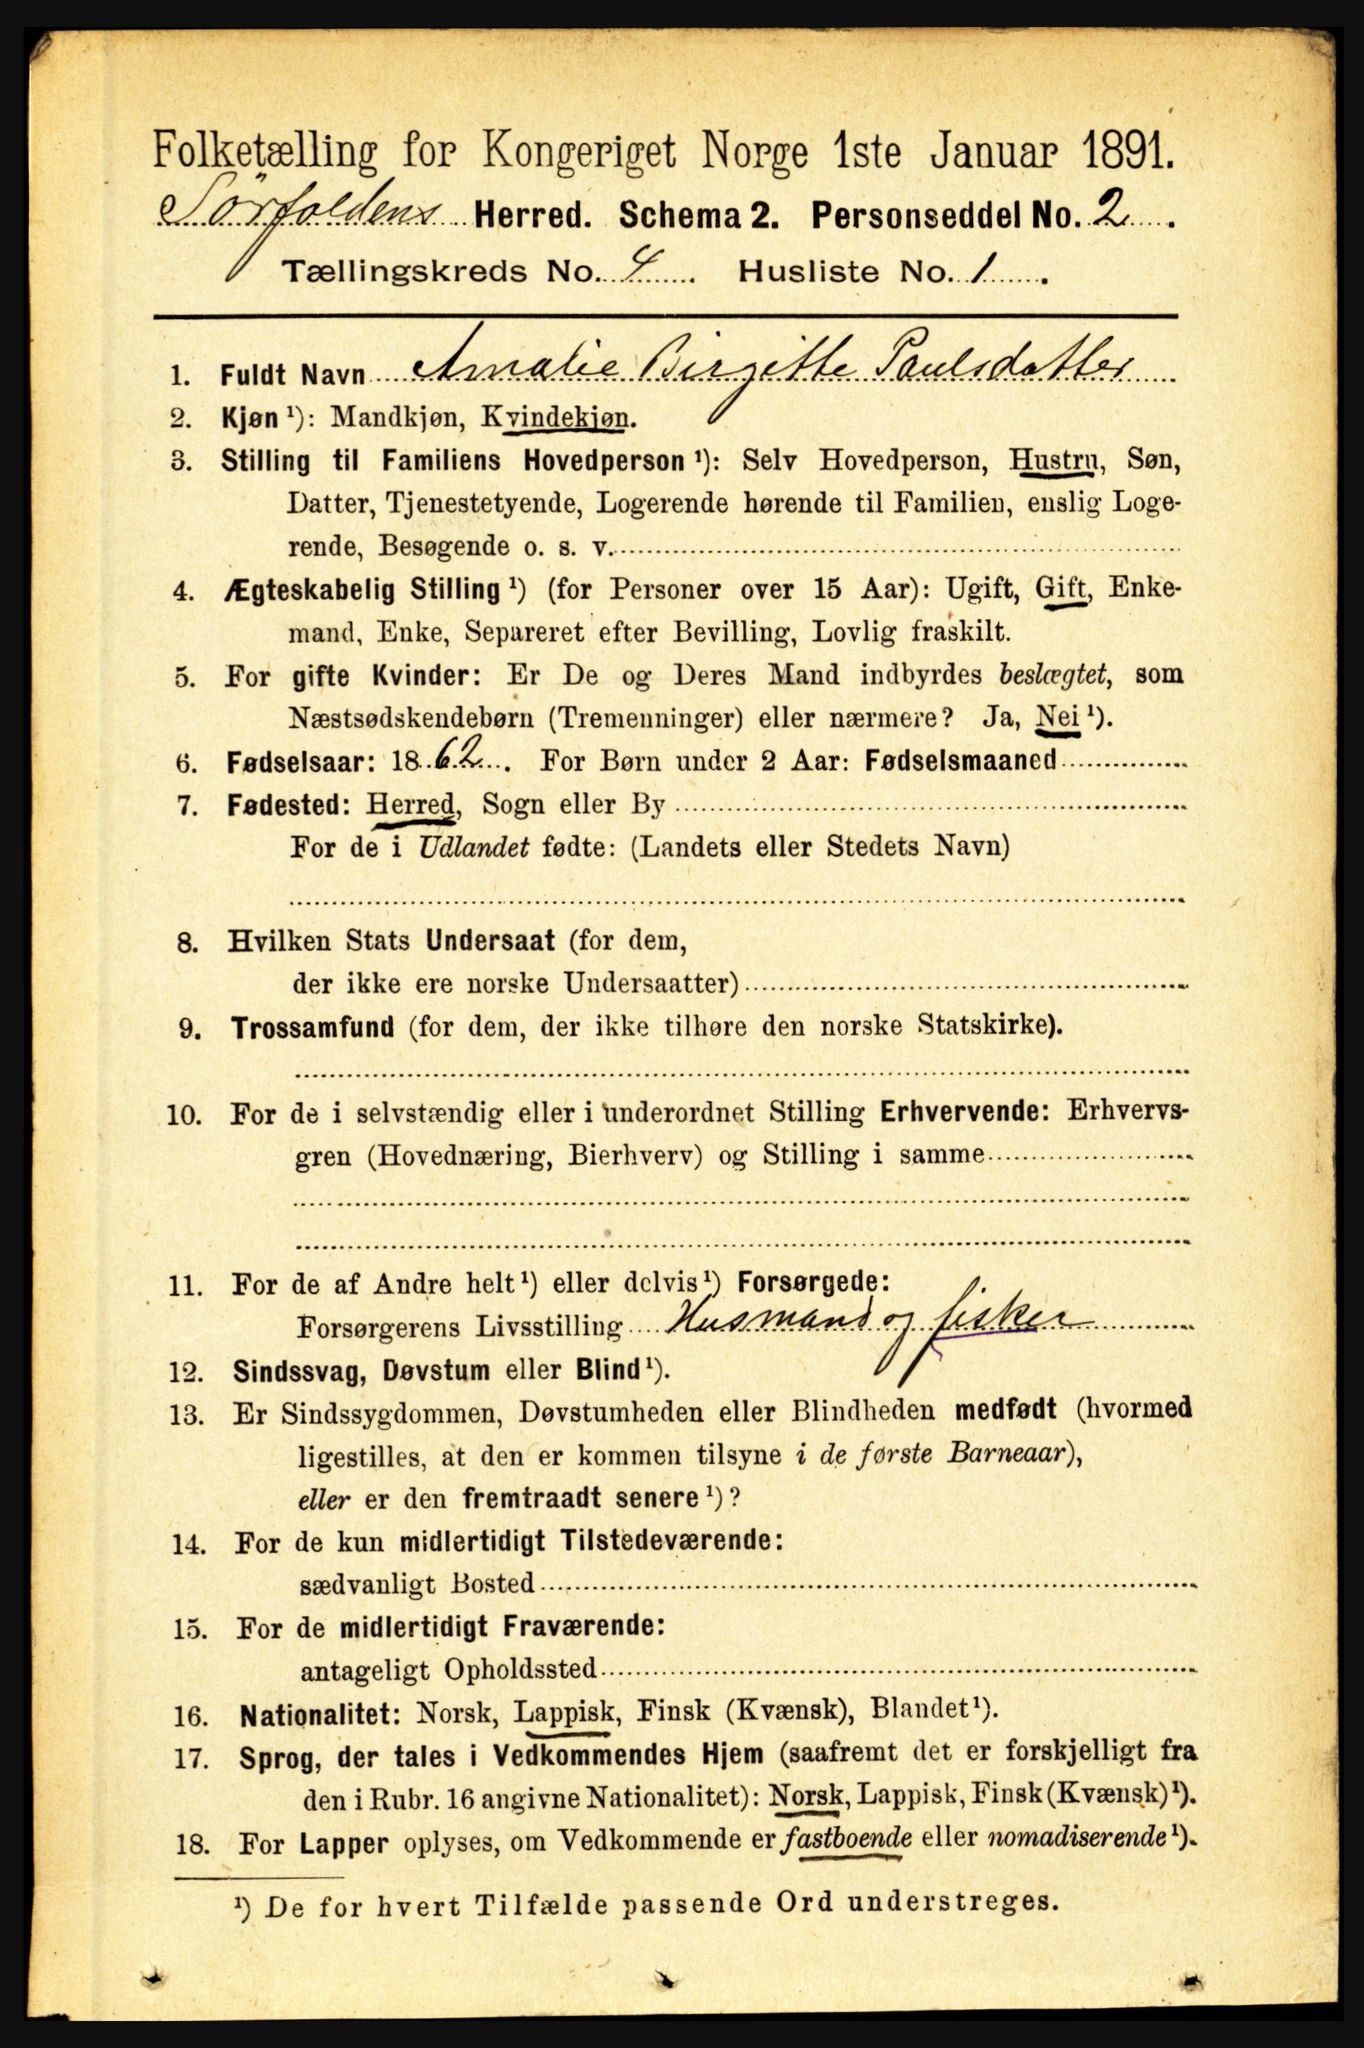 Folketælling for Kongeriget Norge 1ste Januar 1891.
Sörfoldens Herred. Schema 2. Personseddel No. 2.
Tællingskreds No. 4. Husliste No. 1.
1. Fuldt Navn Amalie Birgitte Paulsdatter
2. Kjøn ¹): Mandkjøn, Kvindekjøn.
3. Stilling til Familiens Hovedperson ¹): Selv Hovedperson, Hustru, Søn,
Datter, Tjenestetyende, Logerende hørende til Familien, enslig Loge-
rende, Besøgende o. s. v.
4. Ægteskabelig Stilling ¹) (for Personer over 15 Aar): Ugift, Gift, Enke-
mand, Enke, Separeret efter Bevilling, Lovlig fraskilt.
5. For gifte Kvinder: Er De og Deres Mand indbyrdes beslægtet, som
Næstsødskendebørn (Tremenninger) eller nærmere? Ja, Nei ¹).
6. Fødselsaar: 1862. For Børn under 2 Aar: Fødselsmaaned
7. Fødested: Herred, Sogn eller By
For de i Udlandet fødte: (Landets eller Stedets Navn)
8. Hvilken Stats Undersaat (for dem,
der ikke ere norske Undersaatter)
9. Trossamfund (for dem, der ikke tilhøre den norske Statskirke).
10. For de i selvstændig eller i underordnet Stilling Erhvervende: Erhvervs-
gren (Hovednæring, Bierhverv) og Stilling i samme
11. For de af Andre helt ¹) eller delvis ¹) Forsørgede:
Forsørgerens Livsstilling Husmand og fisker
12. Sindssvag, Døvstum eller Blind ¹).
13. Er Sindssygdommen, Døvstumheden eller Blindheden medfødt (hvormed
ligestilles, at den er kommen tilsyne i de første Barneaar),
eller er den fremtraadt senere ¹)?
14. For de kun midlertidigt Tilstedeværende:
sædvanligt Bosted
15. For de midlertidigt Fraværende:
antageligt Opholdssted
16. Nationalitet: Norsk, Lappisk, Finsk (Kvænsk), Blandet ¹).
17. Sprog, der tales i Vedkommendes Hjem (saafremt det er forskjelligt fra
den i Rubr. 16 angivne Nationalitet): Norsk, Lappisk, Finsk (Kvænsk) ¹).
18. For Lapper oplyses, om Vedkommende er fastboende eller nomadiserende ¹).
¹) De for hvert Tilfælde passende Ord understreges.